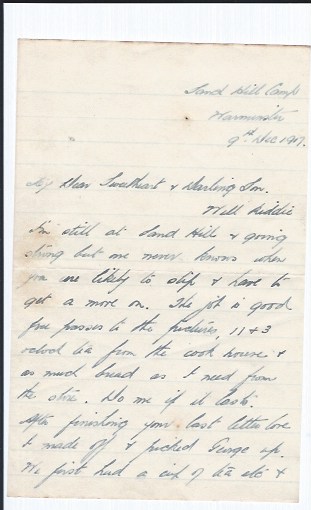 Sand Hill Camp
Warminster
9th Dec 1917.
My Dear Sweetheart & Darling Son.
Well Kiddie
I'm still at Sand Hill & going
strong but one never knows when
you are likely to slip & have to
get a move on. The job is good
free passes to the pictures, 11 & 3
oclock tea from the cook house &
as much bread as I need from
the store. Do me if it lasts.
After finishing your last letter love
I made off & picked George up.
We first had a cup of tea etc &